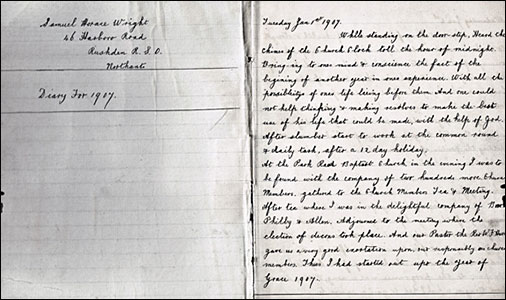 Samuel Horace Wright
46 Harboro Road
Rushden R.S.O.
Northants
Diary For 1907.
Tuesday Jan 1st 1907.
While standing on the door-step, Heard the
chimes of the Church Clock toll the hour of midnight.
Bringing to ones mind & conscience the fact of the
begining of another year in ones experience. With all the
possibilitys of ones life living before them. And one could
not help thinking & making resolves to make the best
use of his life that could be made, with the help of God.
After slumber start to work at the common round
& daily task, after a 12 day holiday.
At the Park Road Baptist Church in the evening I was to
be found with the company of two hundreds more Church
Members, gathered to the Church Members Tea & Meeting.
After tea where I was in the delightful company of
Philly & Allen. Adjourned to the meeting where the
election of decons took place. And our Pastor the Rev
gave us a very good exortation upon our responsibly as church
members. Thus I had started out upo the year of
Grace 1907.